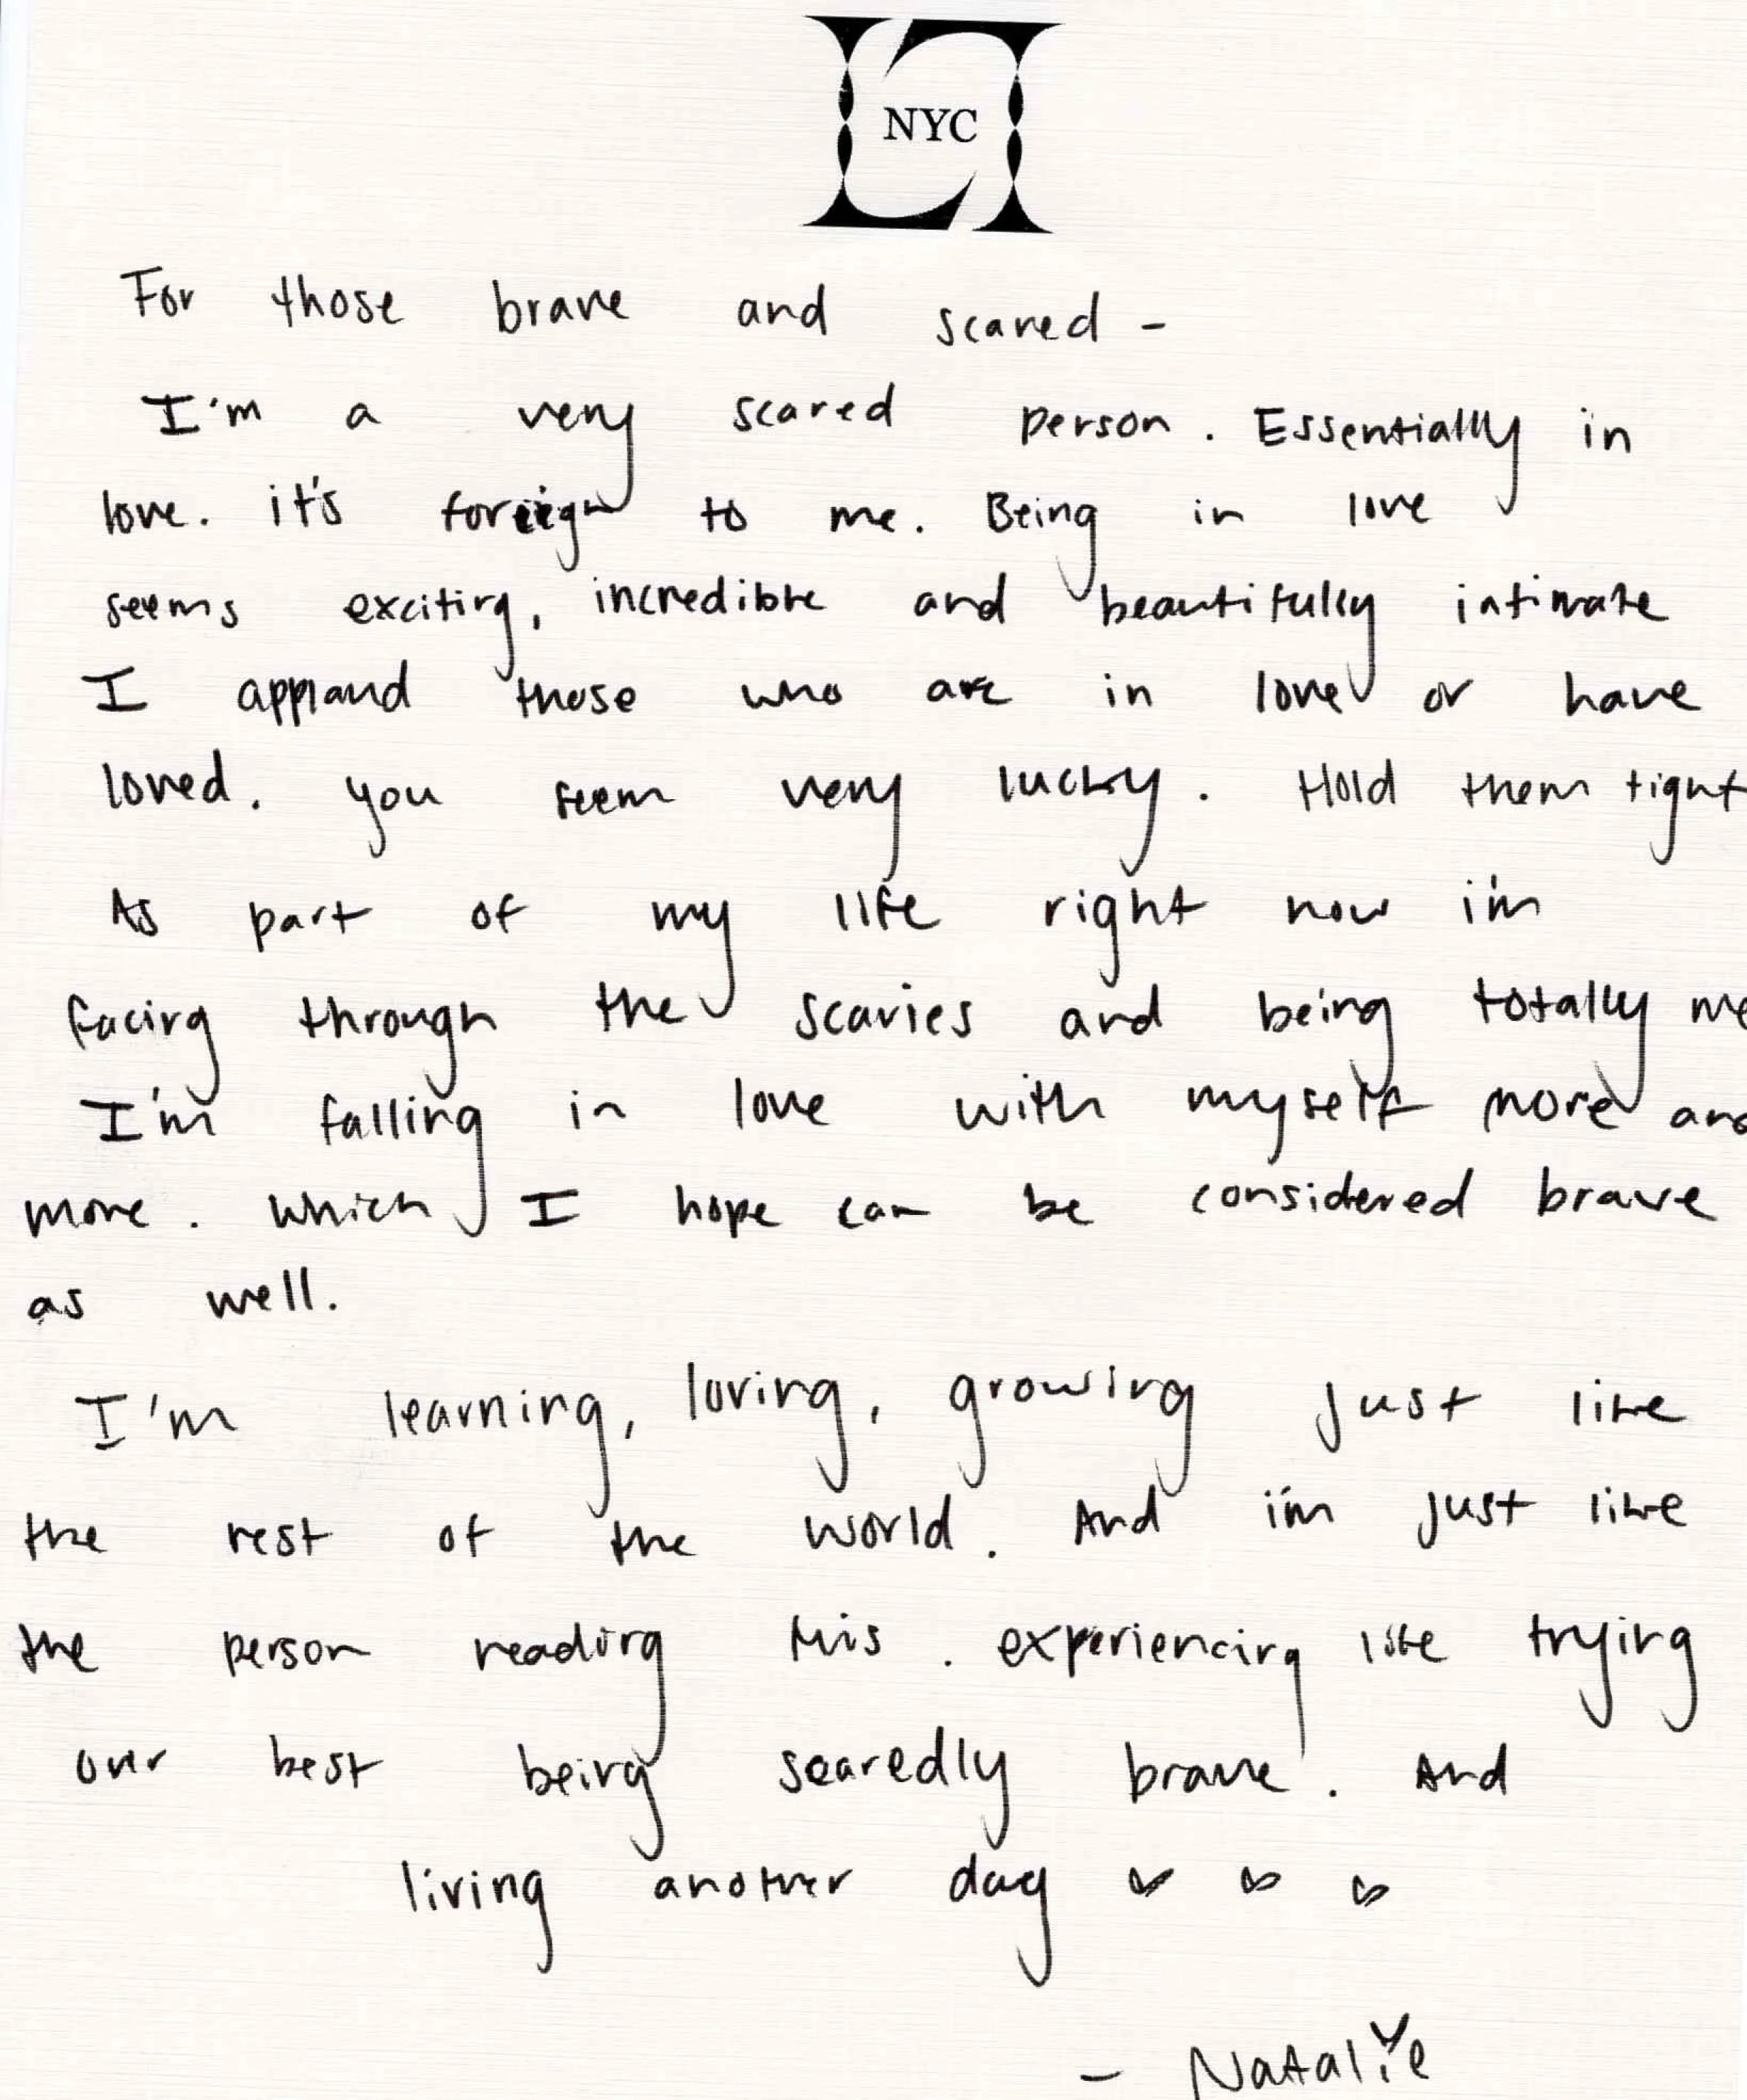 LI
NYC
For those brave and scared -
I'm a very scared person. Essentially in
love. it's foreign to me. Being in love
seems exciting, incredible and beautifully intimate
I applaud those who are in love or have
loved. you seem very lucky. Hold them tight
As part of my life right now i'm
facing through the scaries and being totally me
I'm falling in love with myself more and
more. which I hope can be considered brave
as well.
I'm learning, loving, growing just like
the rest of the world. And i'm just like
the person reading this. experiencing life trying
our best being scaredly brave. And
living another day ♡ ♡ ♡
- Natalie